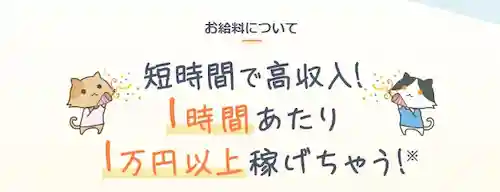 お給料について
短時間で高収入!
1時間あたり
1万円以上稼げちゃう!※